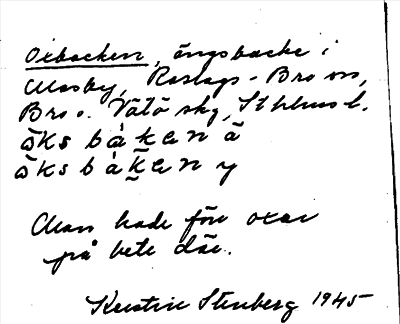 Oxbacken, ängsbacke i
Åsby, Roslags-Bro sn,
Bro o. Vätö skg, Sthlms l.
ŏ̀ksbàkɐn å
ŏ̀ksbàkɐn y
Man hade förr oxar
på bete där.
Kerstin Stenberg 1945